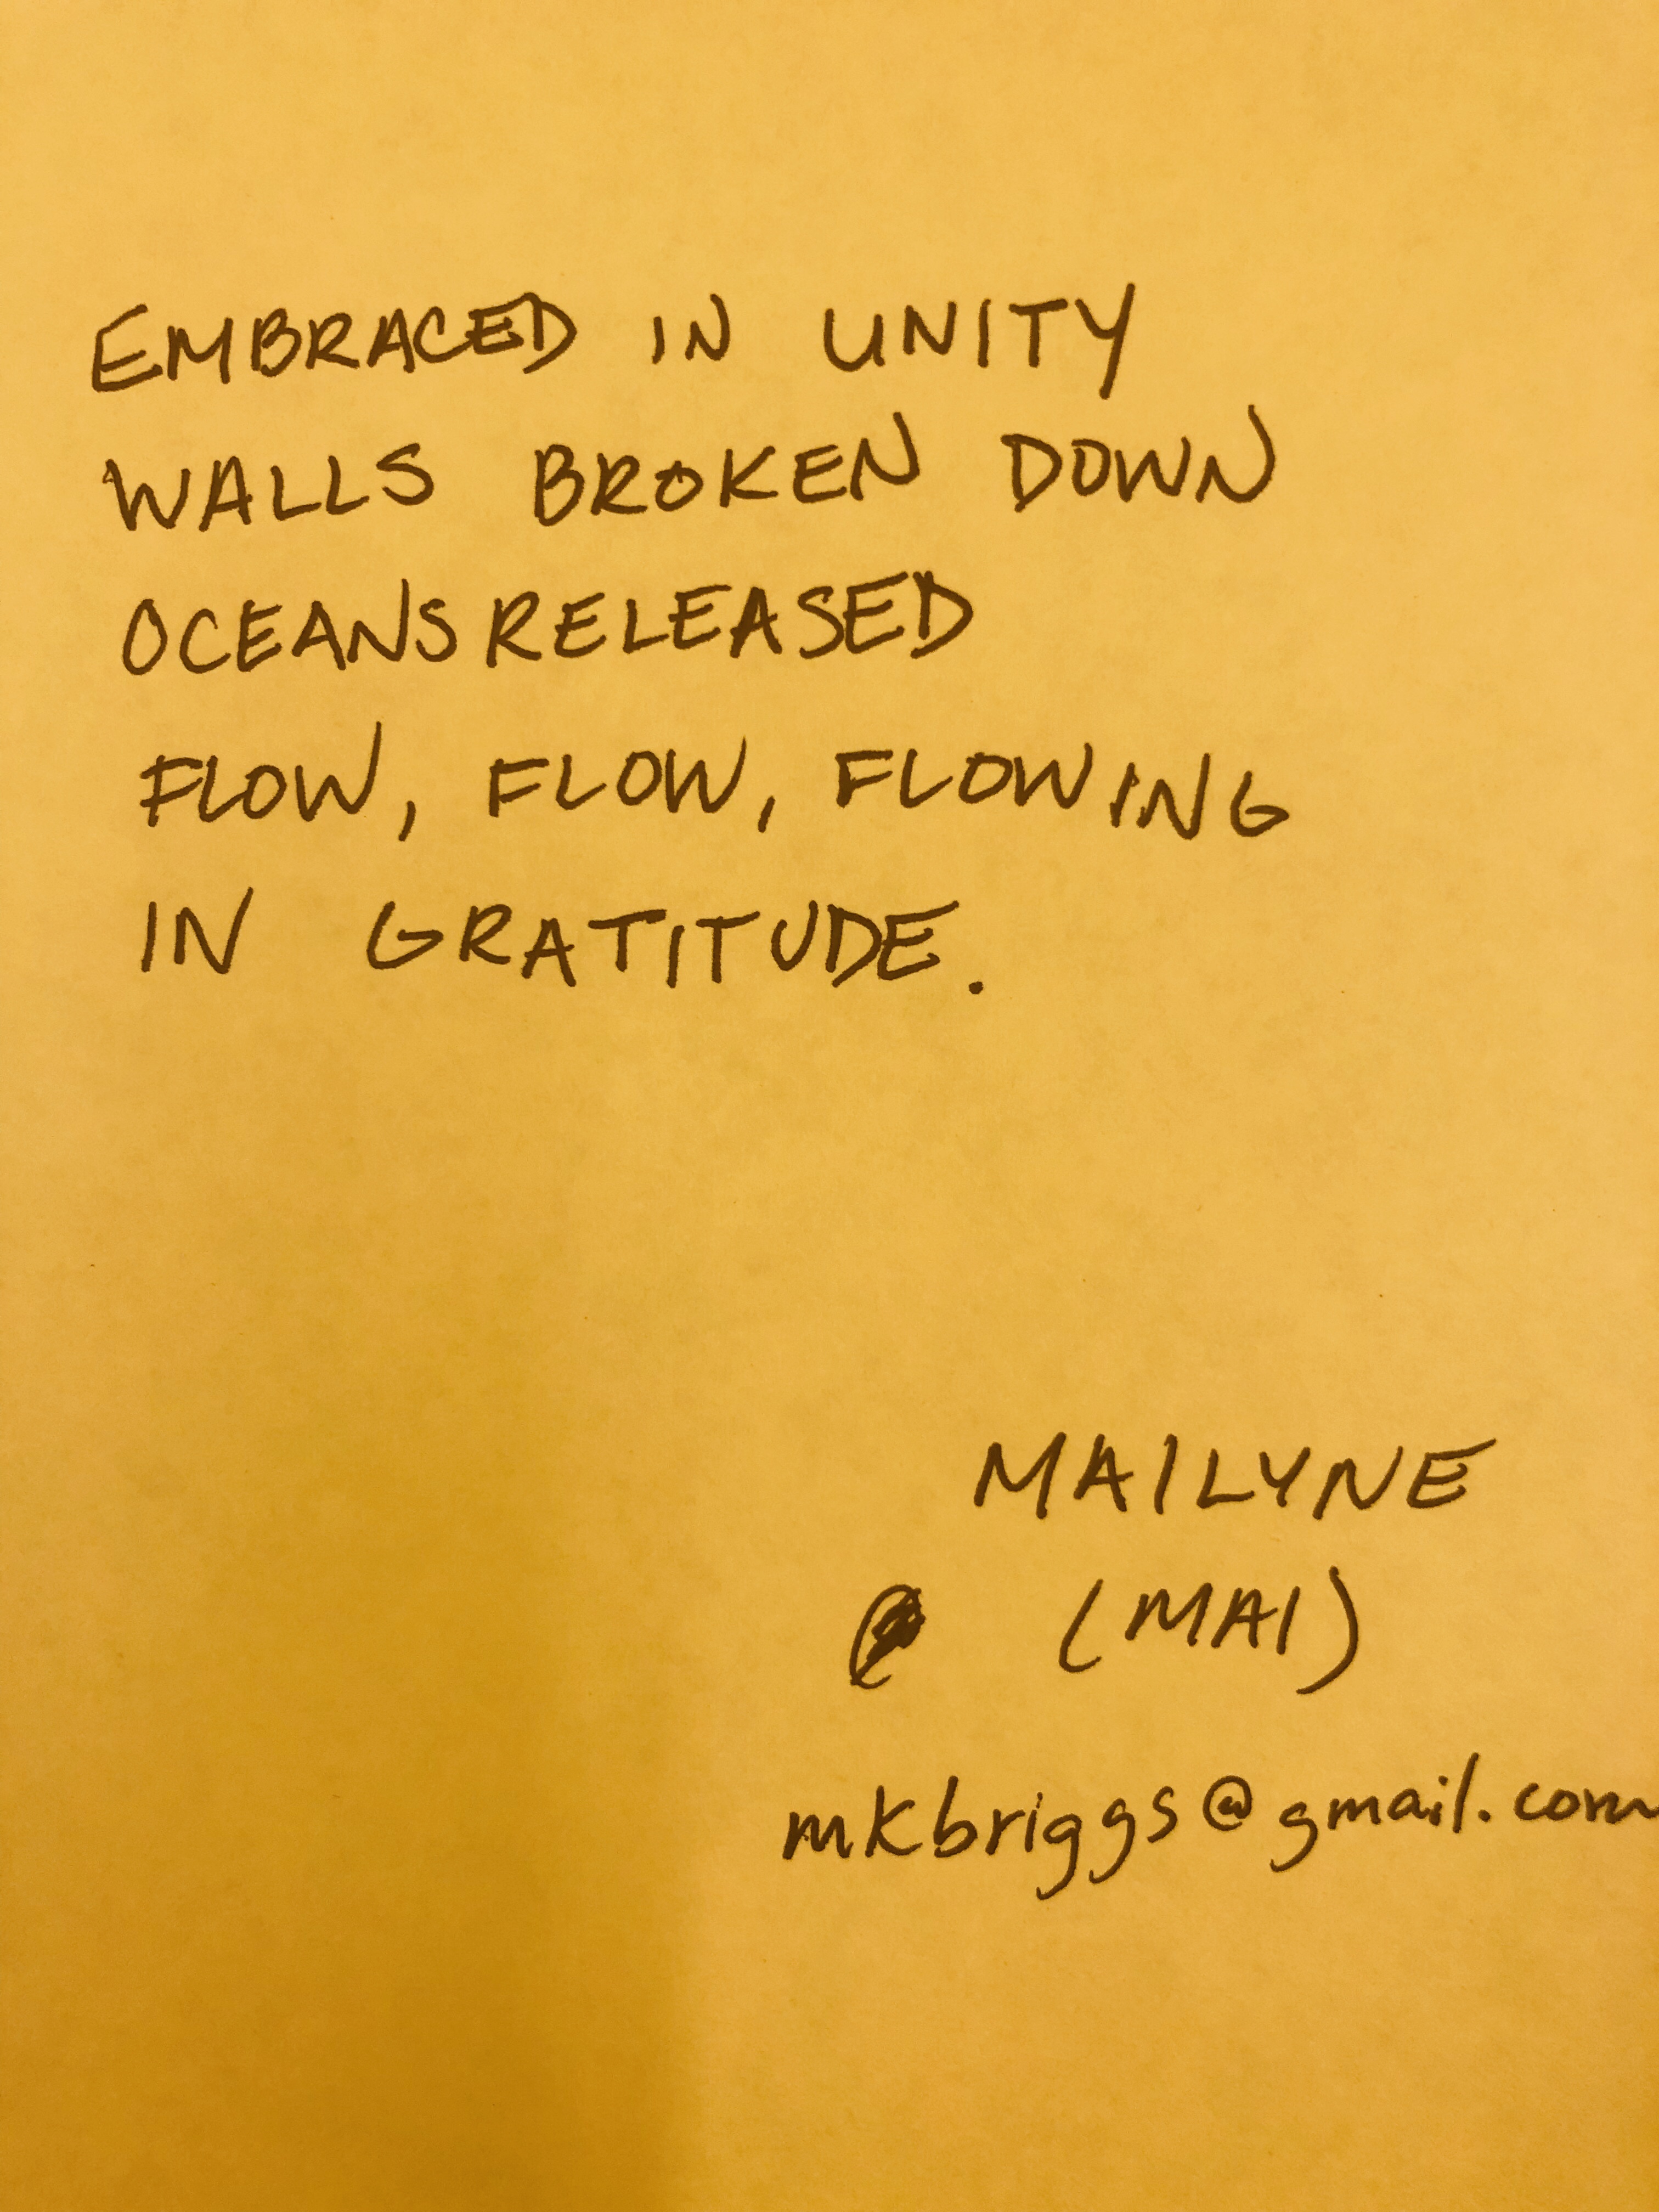 EMBRACED IN UNITY
WALLS BROKEN DOWN
OCEANS RELEASED
FLOW, FLOW, FLOWING
IN GRATITUDE.
MAILYNE
(MAI)
mkbriggs@gmail.com